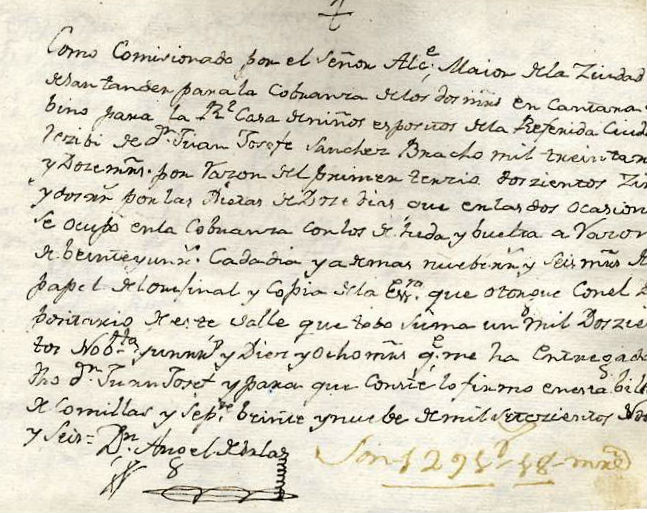 Como Comisionado por el Señor Alc.e Maior de la Ziudad
de Santander para la Cobranza de los dos mrs en Cantara
bino para la Rl Casa de niños expositos de la Referida Ciud
Rezibi de dn Juan Josefe Sanchez Bracho mil treinta
y Doze mrs. por razon del primer terzio doszientos
y dos rrs por las Dietas de Doze dias que en las dos ocasion
se ocupó en la Cobranza con los de hida y buelta a razon
de beinte y un rs. Cada dia y ademas nuebe rrs y seis mrs de
papel del original y Copia de la Essra. que otorgue Con el
positario de este Valle que todo suma un mil Doszie
tos Nobta y un rrs y Diez y Ocho mrs qe me ha Entregado
dho dn Juan Josef y para que Conste lo firmo en esta billa
de Comillas y Sepre beinte y nuebe de mil setezientos
y Seis=
Dn. Angel
Son 1291 rs 18 mrs